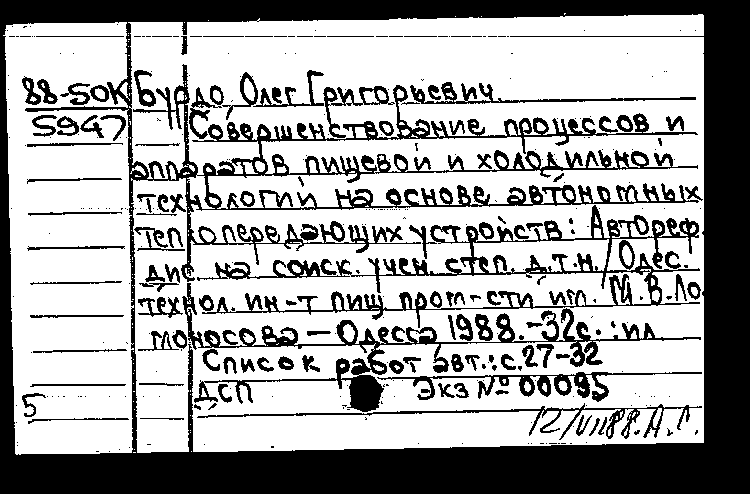 88-50К Бурдо Олег Григорьевич.
5947 Совершенствование процессов и
аппаратов пищевой и холодильной
технологий на основе автономных
теплопередающих устройств: Автореф.
дис. на соиск. учен. степ. д.т.н./Одес.
технол. ин-т пищ. пром-сти им. М.В.Ло-
моносова.—Одесса 1988.-32с.:ил
Список работ авт.:с.27-32
ДСП Экз № 00095
5
12/VII88. А.Г.